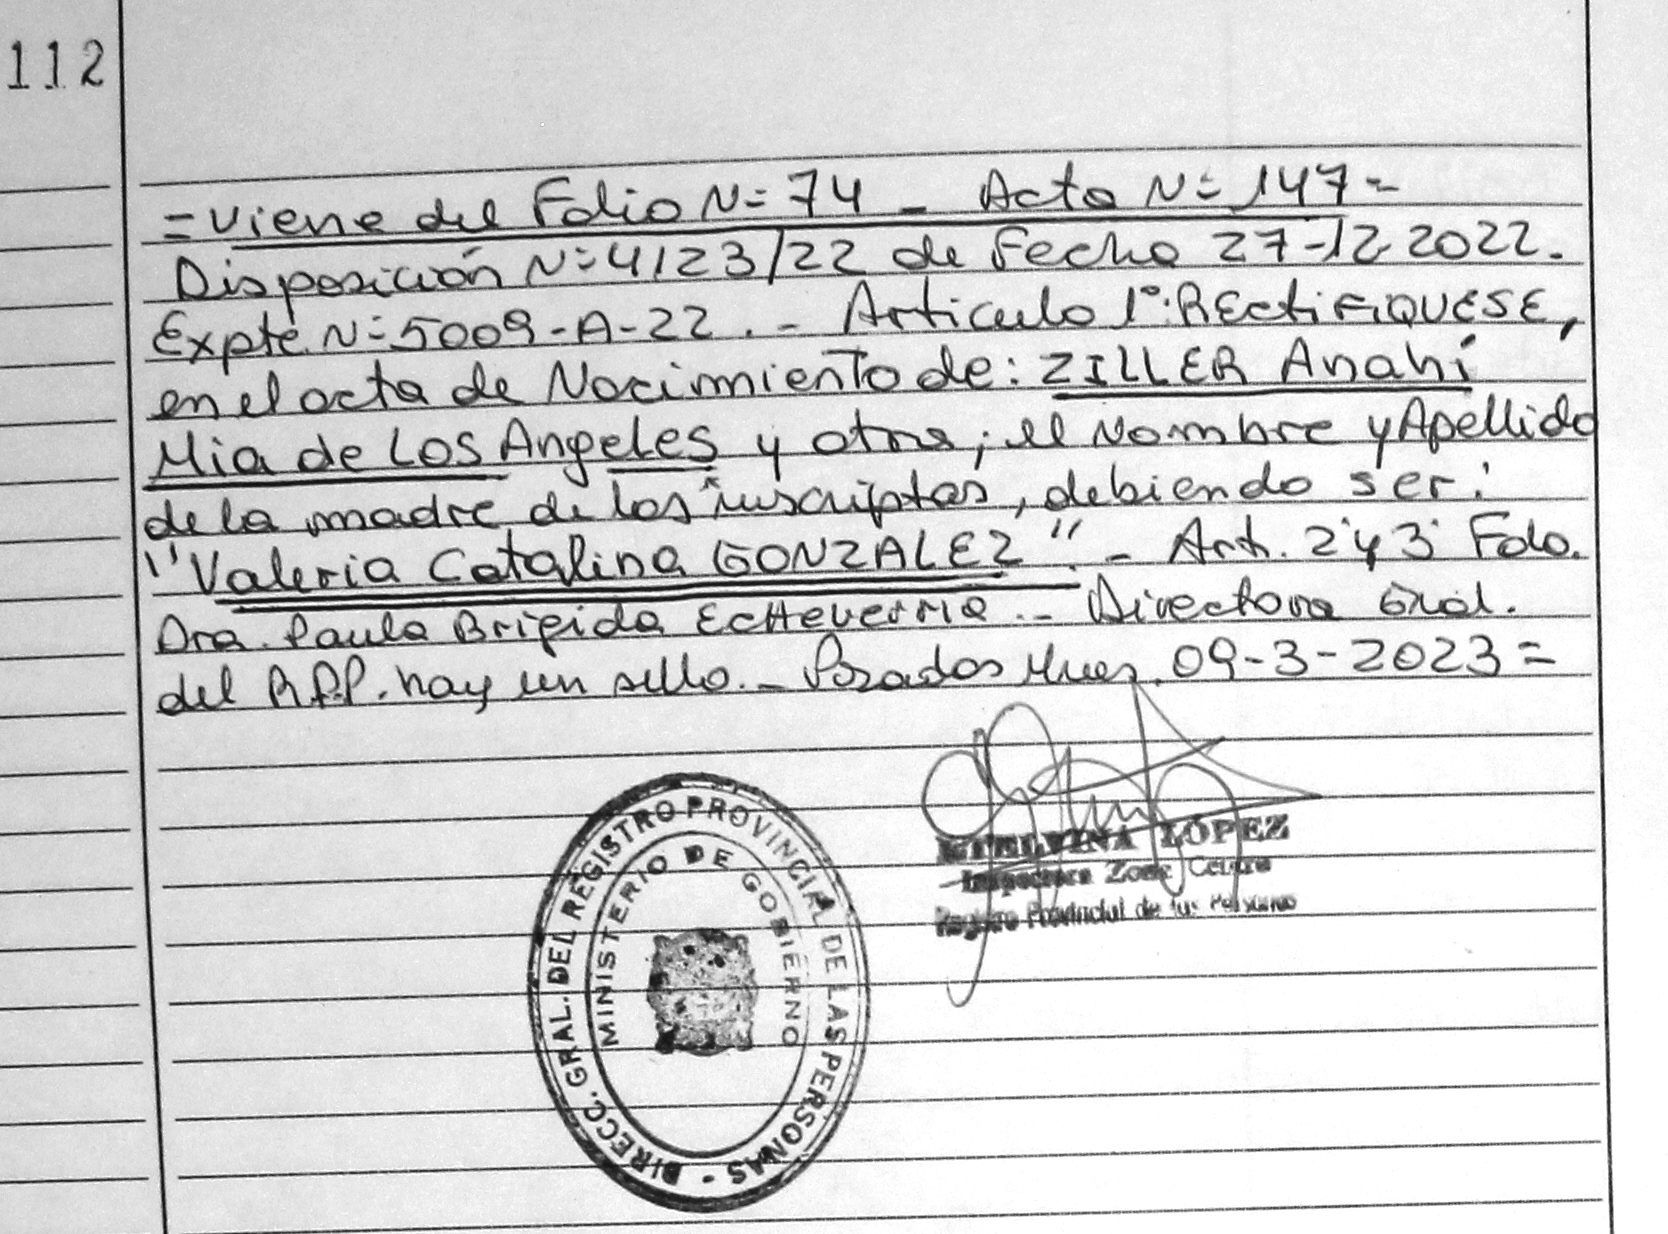 112
=Viene del Folio N= 74 - Acta N= 147=
Disposición N=4123/22 de Fecha 27-12-2022.
Expte. N=5009-A-22.- Articulo 1°: RECtiFIQUESE,
en el acta de Nacimiento de: ZILLER Anahí
Mia de LOS Angeles y otras; el Nombre y Apellido
de la madre de las inscriptas, debiendo ser:
"Valeria Catalina GONZALEZ".- Art. 2° y 3° Fdo.
Dra. Paula Brigida EcHeverria.- Directora Gral.
del R.P.P. hay un sello.- Posadas Mnes, 09-3-2023=
DIRECC. GRAL. DEL REGISTRO PROVINCIAL DE LAS PERSONAS -
MINISTERIO DE GOBIERNO
LÓPEZ
Inspectora Zona Centro
Registro Provincial de las Personas